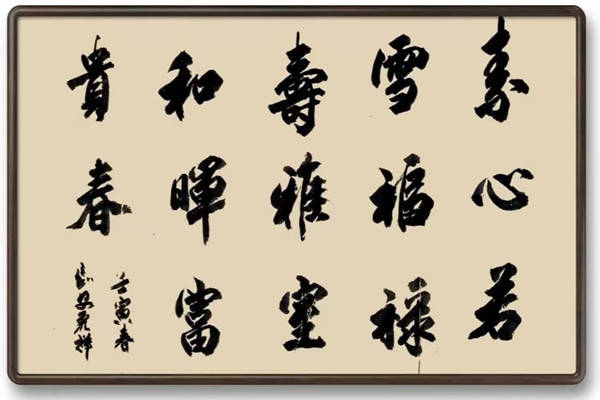 素心若
雪福禄
壽雅室
和暉富
貴春
壬寅春
祥